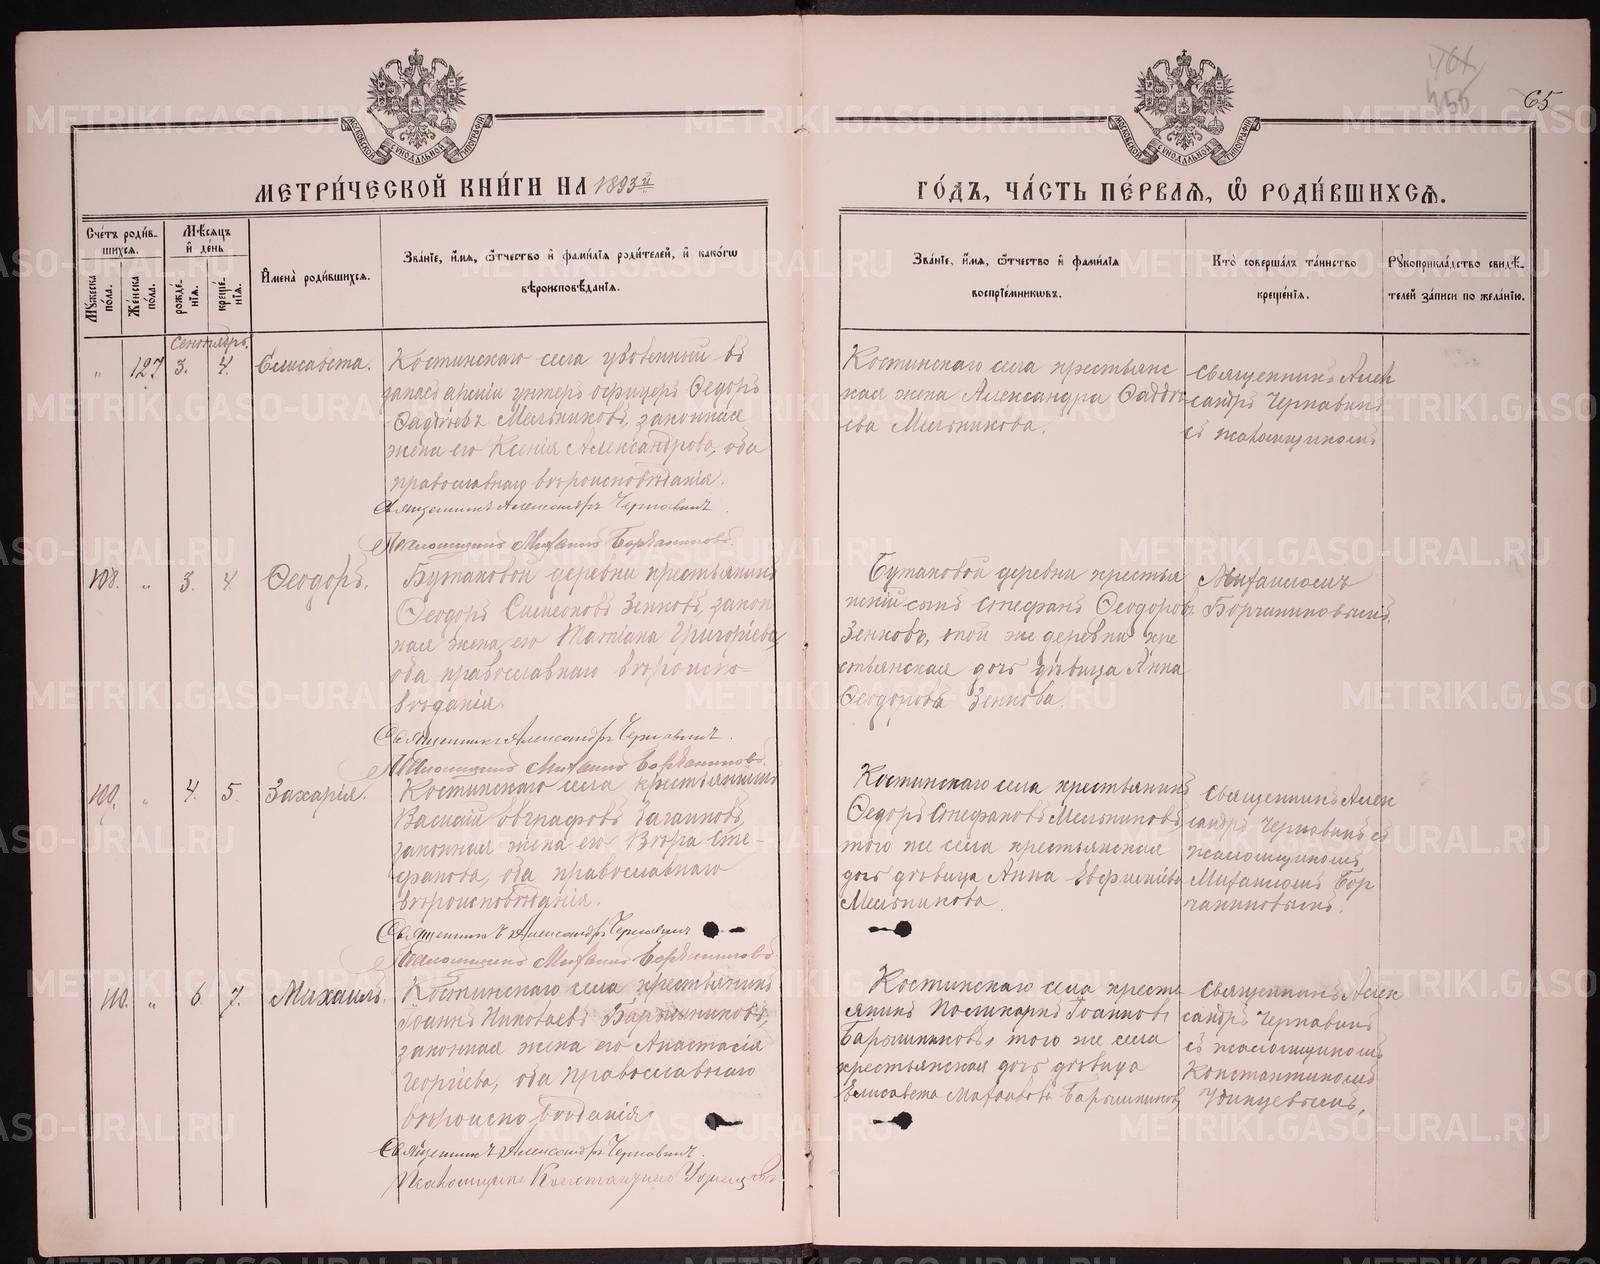 65
МОСКОВСКОЙ СѴНОДАЛЬНОЙ ТИПОГРАФІИ
МОСКОВСКОЙ СѴНОДАЛЬНОЙ ТИПОГРАФІИ
МЕТРИ́ЧЕСКОЙ КНИ́ГИ НА 1893й
ГО́ДЪ, ЧА́СТЬ ПЕ́РВАЯ, Ѡ҆ РОДИ́ВШИХСЯ.
Сче́тъ роди́вшихся.
Му́жеска по́ла.
Же́нска по́ла.
Мѣ́сяцъ и҆ де́нь
рожде́нія.
креще́нія.
И҆мена̀ роди́вшихся.
Зва́ніе, и҆́мя, ѻ҆́тчество и҆ фами́лія роди́телей, и҆ како́гѡ
вѣроисповѣ́данія.
Зва́ніе, и҆́мя, ѻ҆́тчество и҆ фами́лія
воспріе́мникѡвъ.
Кто̀ соверша́лъ та́инство
креще́нія.
Рꙋкоприкла́дство свидѣ́телей за́писи по жела́нію.
Сентябрь.
" 127 3. 4. Елисавета.
Костинскаго села уволенный въ
запасъ арміи унтеръ офицеръ Ѳедоръ
Мельниковъ, законная
жена его Ксенія Александрова, оба
православнаго вѣроисповѣданія.
Священникъ Александръ Чернавинъ.
Псаломщикъ Михаилъ Борчаниновъ.
Костинскаго села крестьянс
кая жена Александра
ева Мельникова.
Священникъ Алек
сандръ Чернавинъ
съ псаломщикомъ
108. " 3. 4. Ѳеодоръ.
Бутаковой деревни крестьянинъ
Ѳеодоръ Симеоновъ Зенковъ, закон
ная жена его Татіана Григоріева,
оба православнаго вѣроиспо-
вѣданія.
Священникъ Александръ Чернавинъ.
Псаломщикъ Михаилъ Борчаниновъ.
Бутаковой деревни крестья
нскій сынъ Стефанъ Ѳеодоровъ
Зенковъ, той же деревни кре
стьянская дочь дѣвица Анна
Ѳеодорова Зенкова.
Михаиломъ
Борчаниновымъ.
109. " 4. 5. Захарія.
Костинскаго села крестьянинъ
Василій Евграфовъ
законная жена его Вѣра Сте-
фанова, оба православнаго
вѣроисповѣданія.
Священникъ Александръ Чернавинъ
Псаломщикъ Михаилъ Борчаниновъ
Костинскаго села крестьянинъ
Ѳедоръ Стефановъ Мельниковъ,
того же села крестьянская
дочь дѣвица Анна Евфиміева
Мельникова.
Священникъ Алек
сандръ Чернавинъ съ
псаломщикомъ
Михаиломъ Бор
чаниновымъ.
110. " 6. 7. Михаилъ.
Костинскаго села крестьянинъ
Іоаннъ Николаевъ
законная жена его Анастасія
Георгіева, оба православнаго
вѣроисповѣданія
Священникъ Александръ Чернавинъ.
Псаломщикъ Константинъ Удинцевъ.
Костинскаго села кресть
янинъ Поликарпъ Іоанновъ
того же села
крестьянская дочь дѣвица
Елисавета
Священникъ Алек
сандръ Чернавинъ
съ псаломщикомъ
Константиномъ
Удинцевымъ.
METRIKI.GASO-URAL.RU